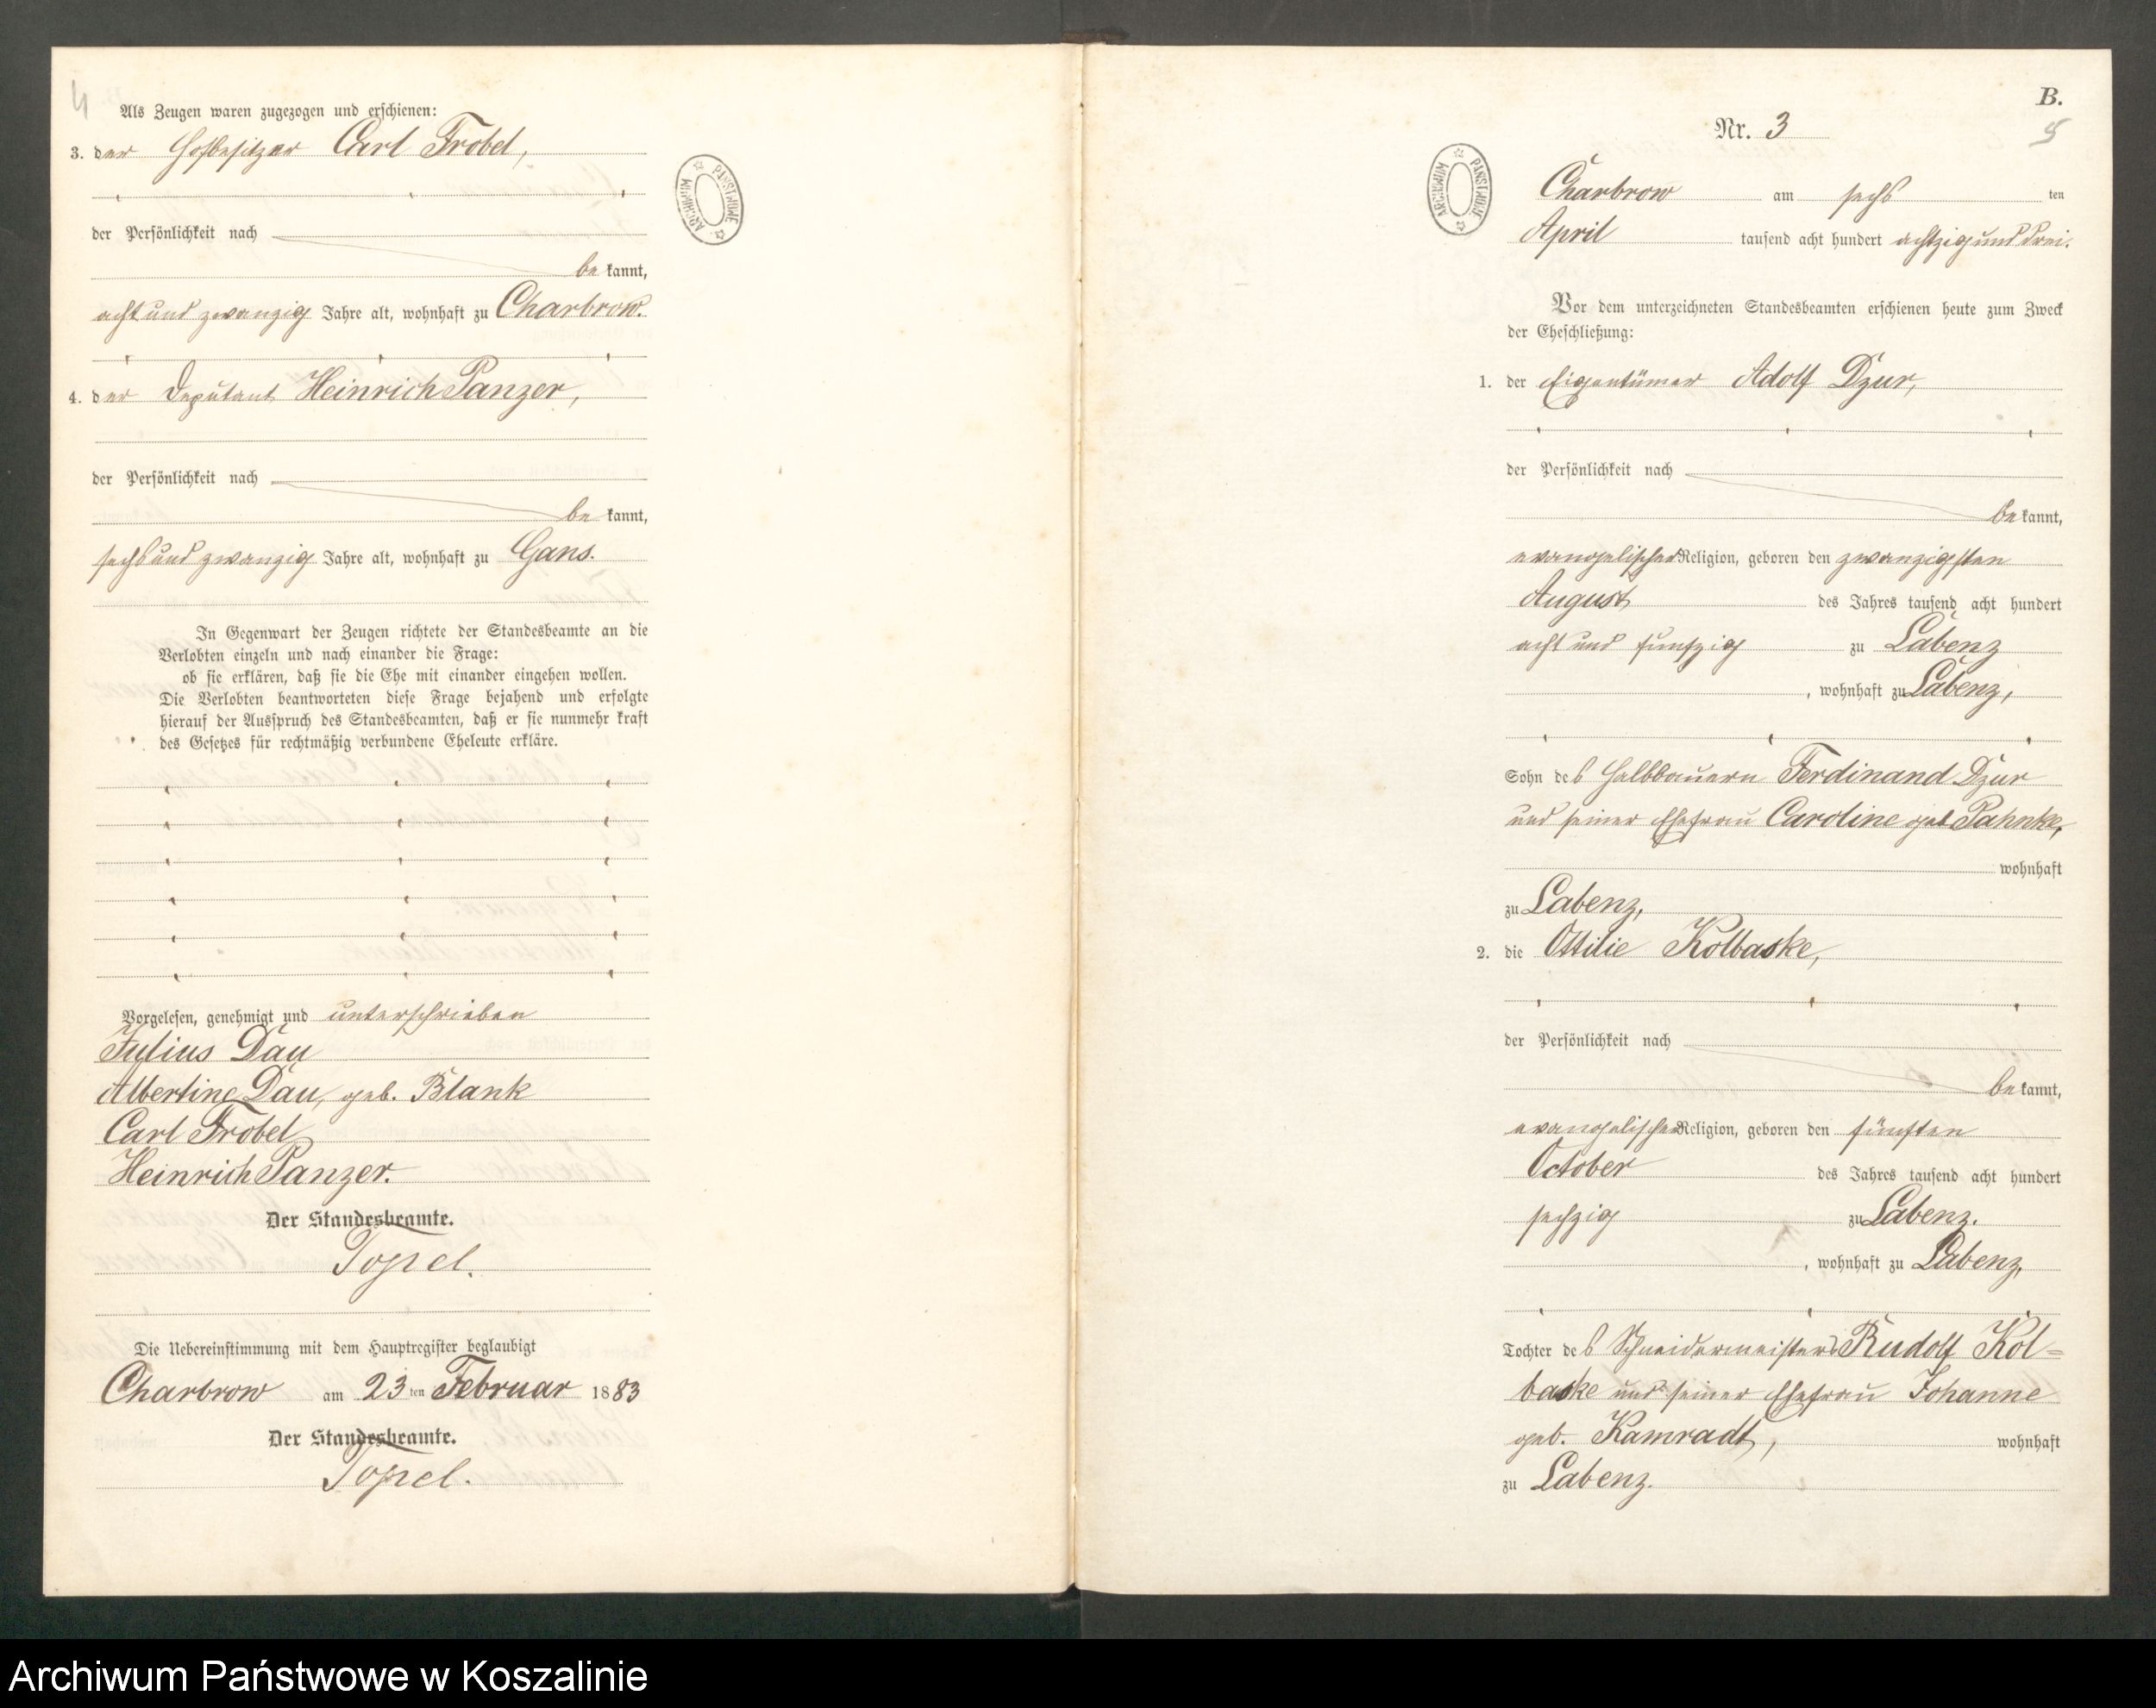 4
Als Zeugen waren zugezogen und erschienen:
3. der Hofbesitzer Carl Trobel,
der Persönlichkeit nach
be kannt,
acht und zwanzig Jahre alt, wohnhaft zu Charbrow.
4. der Deputant Heinrich Panzer,
der Persönlichkeit nach
be kannt,
sechs und zwanzig Jahre alt, wohnhaft zu Gans.
In Gegenwart der Zeugen richtete der Standesbeamte an die
Verlobten einzeln und nach einander die Frage:
ob sie erklären, daß sie die Ehe mit einander eingehen wollen.
Die Verlobten beantworteten diese Frage bejahend und erfolgte
hierauf der Ausspruch des Standesbeamten, daß er sie nunmehr kraft
des Gesetzes für rechtmäßig verbundene Eheleute erkläre.
Vorgelesen, genehmigt und unterschrieben
Julius Dau
Albertine Dau, geb. Blank
Carl Trobel
Heinrich Panzer.
Der Standesbeamte.
Topel.
Die Uebereinstimmung mit dem Hauptregister beglaubigt
Charbrow am 23 ten Februar 1883
Der Standesbeamte.
Topel.
ARCHIWUM PAŃSTWOWE
B.
Nr. 3
5
ARCHIWUM PAŃSTWOWE
Charbrow am sechs ten
April tausend acht hundert achtzig und drei.
Vor dem unterzeichneten Standesbeamten erschienen heute zum Zweck
der Eheschließung:
1. der Eigentümer Adolf Dzur,
der Persönlichkeit nach
be kannt,
evangelischer Religion, geboren den zwanzigsten
August des Jahres tausend acht hundert
acht und funfzig zu Labenz
, wohnhaft zu Labenz,
Sohn des Halbbauern Ferdinand Dzur
und seiner Ehefrau Caroline geb Pahnke,
wohnhaft
zu Labenz,
2. die Ottilie Kolbaske,
der Persönlichkeit nach
be kannt,
evangelischer Religion, geboren den fünften
October des Jahres tausend acht hundert
sechzig zu Labenz.
, wohnhaft zu Labenz,
Tochter des Schneidermeisters Rudolf Kol-
baske und seiner Ehefrau Johanne
geb. Kamradt, wohnhaft
zu Labenz.
Archiwum Państwowe w Koszalinie